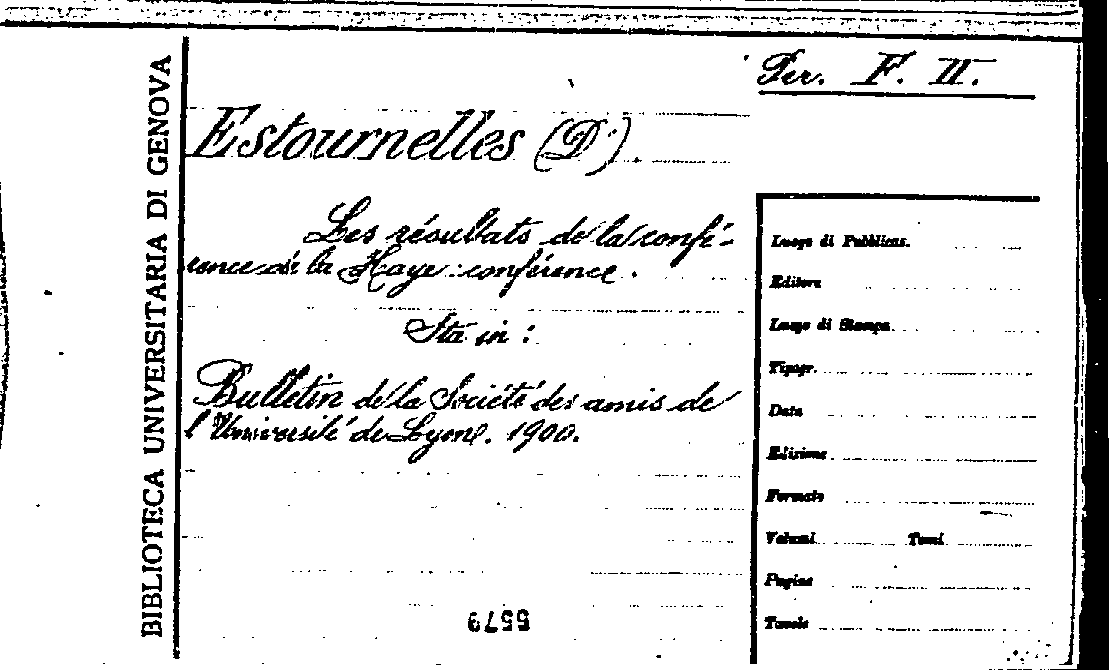 Per. F. II.
BIBLIOTECA UNIVERSITARIA DI GENOVA
Estournelles (D').
Les résultats de la confé-
rence de la Haye: conférence.
Sta in:
Bulletin de la Société des amis de
l'Université de Lyon. 1900.
5579
Luogo di Pubblicaz.
Editore
Luogo di Stampa
Tipogr.
Data
Edizione
Formato
Volumi Tomi
Pagine
Tavole